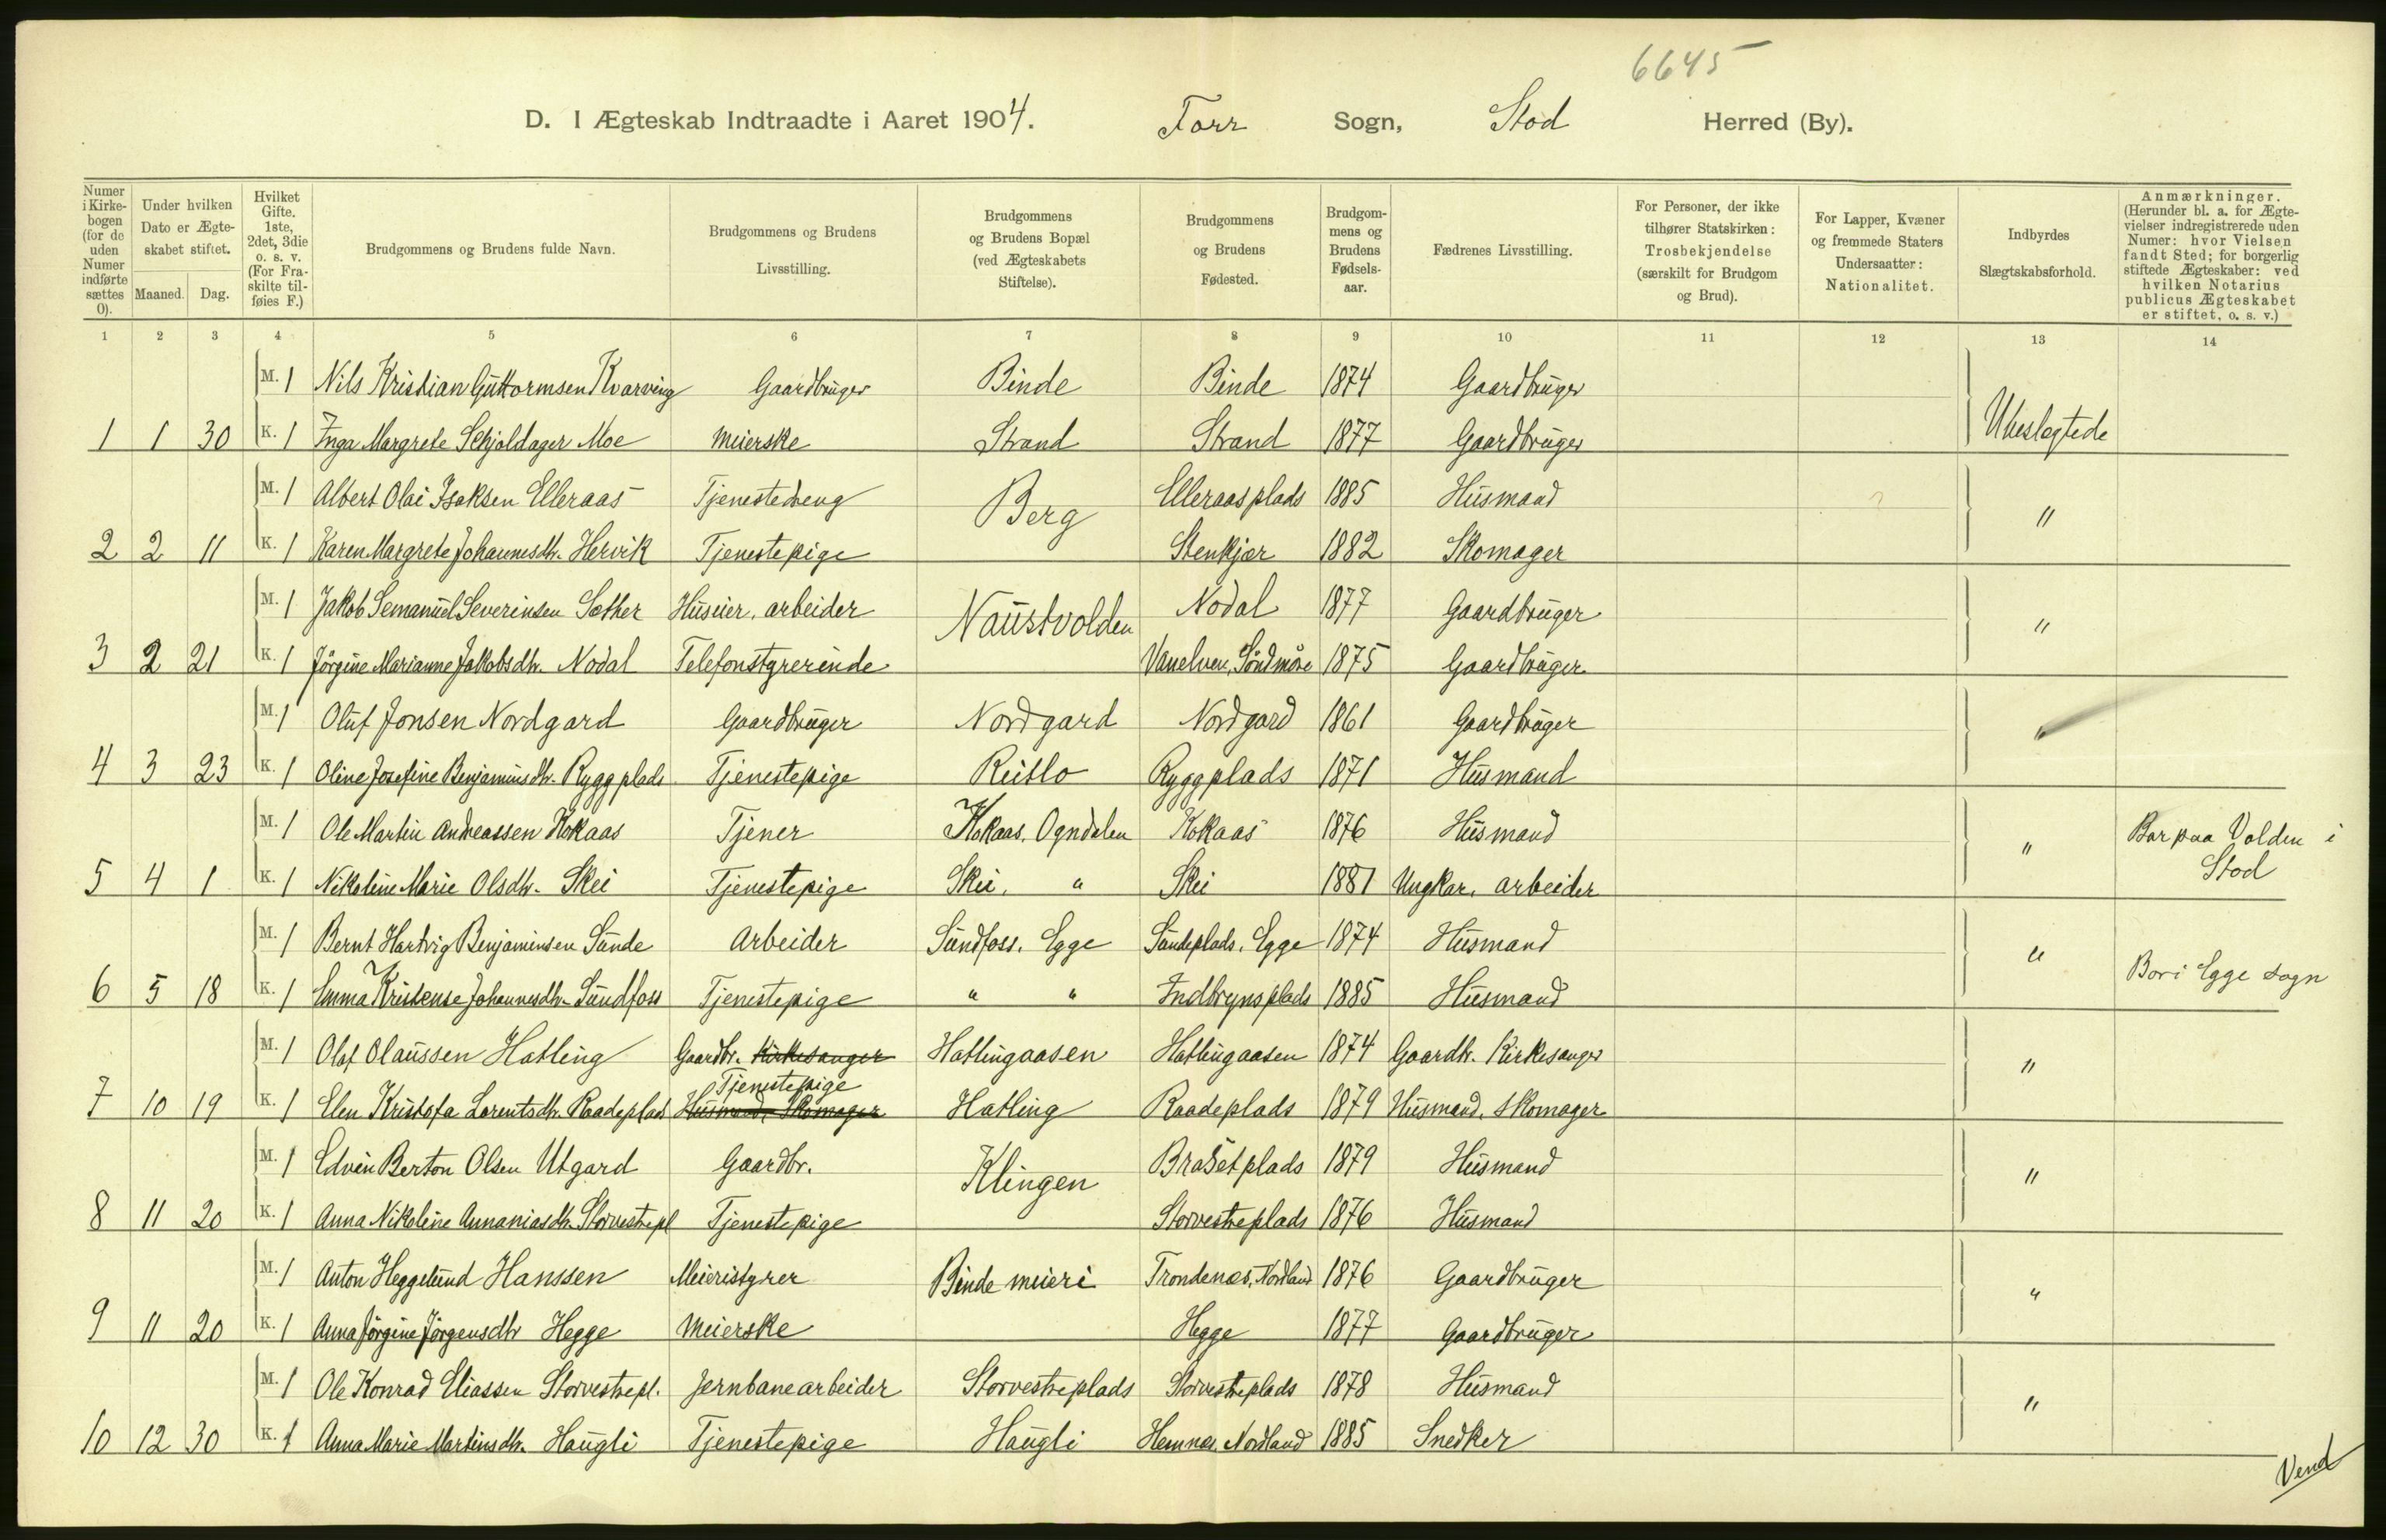 6645
D. I Ægteskab Indtraadte i Aaret 1904. For Sogn, Stod Herred (By).
Numer i Kirkebogen (for de uden Numer indførte sættes 0).
Under hvilken Dato er Ægteskabet stiftet.
Maaned. Dag.
Hvilket Gifte. 1ste, 2det, 3die o. s. v. (For Fraskilte tilføies F.)
Brudgommens og Brudens fulde Navn.
Brudgommens og Brudens Livsstilling.
Brudgommens og Brudens Bopæl (ved Ægteskabets Stiftelse).
Brudgommens og Brudens Fødested.
Brudgommens og Brudens Fødselsaar.
Fædrenes Livsstilling.
For Personer, der ikke tilhører Statskirken: Trosbekjendelse (særskilt for Brudgom og Brud).
For Lapper, Kvæner og fremmede Staters Undersaatter: Nationalitet.
Indbyrdes Slægtskabsforhold.
Anmærkninger. (Herunder bl. a. for Ægtevielser indregistrerede uden Numer: hvor Vielsen fandt Sted; for borgerlig stiftede Ægteskaber: ved hvilken Notarius publicus Ægteskabet er stiftet, o. s. v.)
1 2 3 4 5 6 7 8 9 10 11 12 13 14
M. 1 Nils Kristian Guttormsen Kvarving Gaardbruger Binde Binde 1874 Gaardbruger
1 1 30 K. 1 Inga Margrete Schjoldager Moe Meierske Strand Strand 1877 Gaardbruger Ubeslegtede
M. 1 Albert Olai Isaksen Elleraas Tjenestedreng Berg Elleraasplads 1885 Husmand "
2 2 11 K. 1 Karen Margrete Johannesdtr. Hervik Tjenestepige Stenkjær 1882 Skomager
M. 1 Jakob Semanuel Severinsen Sæther Huseier, arbeider Naustvolden Nodal 1877 Gaardbruger "
3 2 21 K. 1 Jørgine Marianne Jakobsdtr. Nodal Telefonstyrerinde Vanelven, Söndmöre 1875 Gaardbruger
M. 1 Oluf Jonsen Nordgard Gaardbruger Nordgard Nordgard 1861 Gaardbruger "
4 3 23 K. 1 Oline Josefine Benjaminsdtr. Ryggplads Tjenestepige Reitlo Ryggplads 1871 Husmand
M. 1 Ole Martin Andreassen Kokaas Tjener Kokaas, Ogndalen Kokaas 1876 Husmand " Bor paa Volden i
5 4 1 K. 1 Nikoline Marie Olsdtr. Skei Tjenestepige Skei, " Skei 1881 Ungkar, arbeider Stod
M. 1 Bernt Hartvig Benjaminsen Sunde Arbeider Sundfoss, Egge Sundeplads, Egge 1874 Husmand "
6 5 18 K. 1 Emma Kristense Johannesdtr. Sundfoss Tjenestepige " " Indbrynsplads 1885 Husmand Bor i Egge sogn
M. 1 Olaf Olaussen Hatling Gaardbr. Kirkesanger Hatlingaasen Hatlingaasen 1874 Gaardb. Kirkesanger "
Tjenestepige
7 10 19 K. 1 Elen Kristofa Lorentsdtr. Raadeplads Husmand, Skomager Hatling Raadeplads 1879 Husmand, skomager
M. 1 Edvin Berton Olsen Utgard Gaardbr. Klingen Brasetplads 1879 Husmand "
8 11 20 K. 1 Anna Nikoline Annaniasdtr. Storvestrepl Tjenestepige Storvestreplads 1876 Husmand
M. 1 Anton Heggelund Hanssen Meieristyrer Binde meieri Trondenæs, Nordland 1876 Gaardbruger "
9 11 20 K. 1 Anna Jörgine Jörgensdtr Hegge Meierske Hegge 1877 Gaardbruger
M. 1 Ole Konrad Eliassen Storvestrepl. Jernbanearbeider Storvestreplads Storvestreplads 1878 Husmand "
10 12 30 K. 1 Anna Marie Martinsdtr. Haugli Tjenestepige Haugli Hemnæs, Nordland 1885 Snedker
Vend